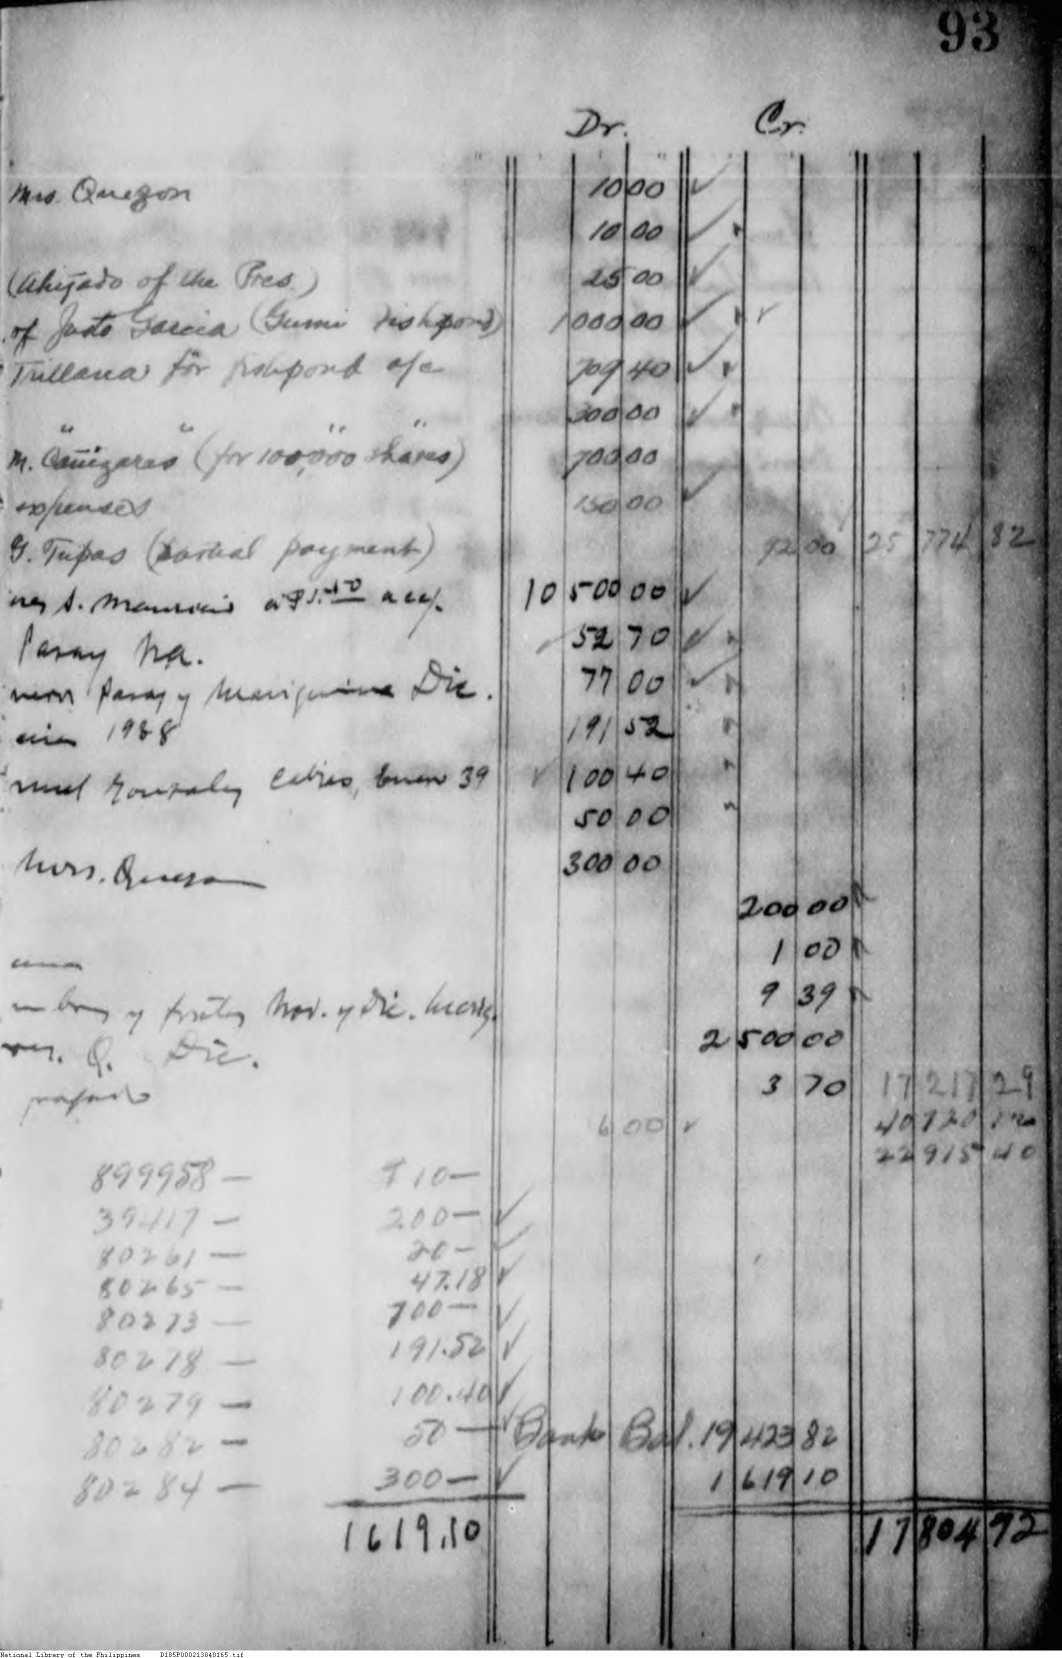 93
Dr. Cr.
Mrs. Quezon 10 00
10 00
(Ahijado of the Pres.) 25 00
of Justo Garcia (Gumi Fishpond) 1 000 00
Trillana for fishpond a/c 709 40
300 00
M. Cañizares (for 100,000 shares) 700 00
expenses 150 00
G. Tupas (partial payment) 92 00 25 774 82
10 500 00
Pasay Na. 52 70
Pasay y Mariquina Dic. 77 00
1938 191 52
Gonzalez Enero 39 100 40
50 00
Mrs. Quezon 300 00
200 00
1 00
y Nov. y Dic. Mariq. 9 39
Q. Dic. 2 500 00
3 70 17 217 29
6 00 40 720 12
22 915 40
899958 — ₱ 10 —
39417 — 200 —
80261 — 20 —
80265 — 47.18
80273 — 700 —
80278 — 191.52
80279 — 100.40
80282 — 50 — Bank Bal. 19 423 82
80284 — 300 — 1 619 10
1619.10 17 804 72
National Library of the Philippines D185P000213040165.tif